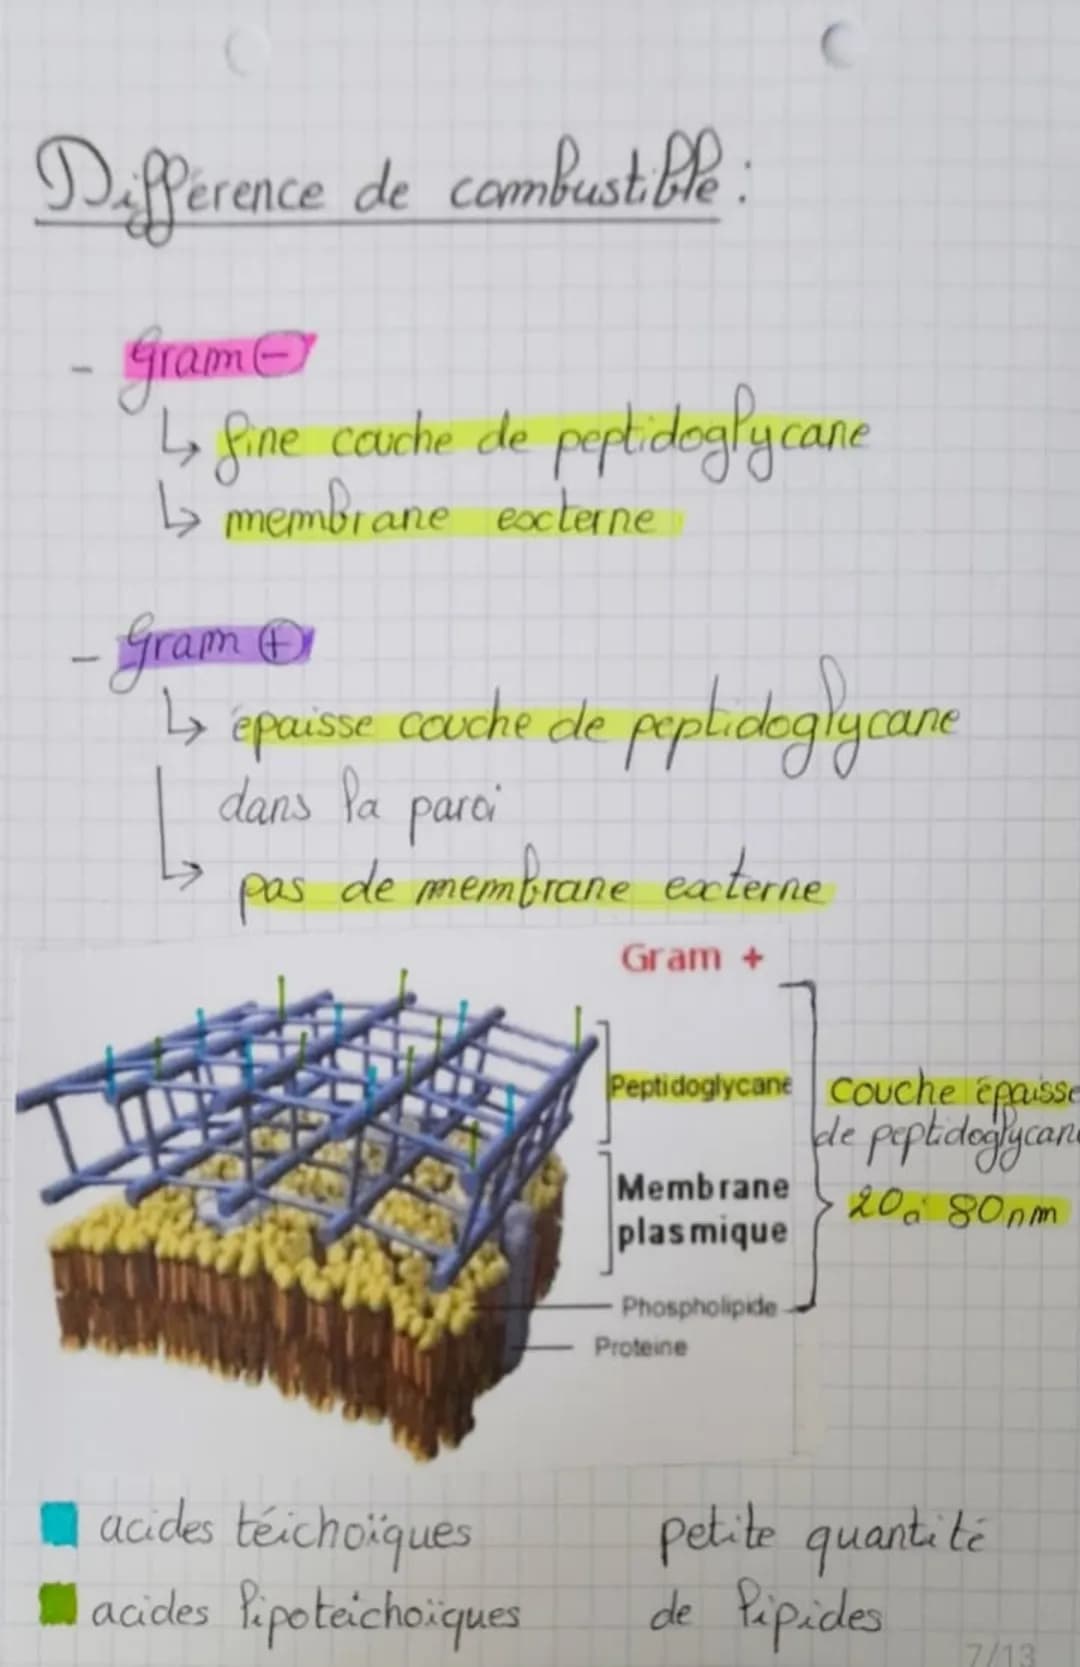 Différence de combustible :
- Gram ⊖
↳ fine couche de peptidoglycane
↳ membrane externe
- Gram ⊕
↳ épaisse couche de peptidoglycane
dans la paroi
↳ pas de membrane externe
Gram +
Peptidoglycane
couche épaisse
de peptidoglycane
Membrane
plasmique
20 à 80nm
Phospholipide
Proteine
acides téichoïques
petite quantité
acides lipoteichoïques
de lipides
7/13